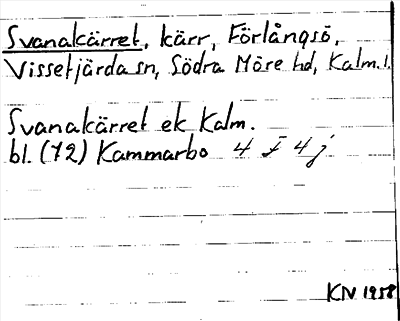 Svanakärret, kärr, Förlångsö,
Vissefjärda sn, Södra Möre hd, Kalm. l.
Svanakärret ek Kalm.
bl. (72) Kammarbo 4 F 4 j
KN 1958